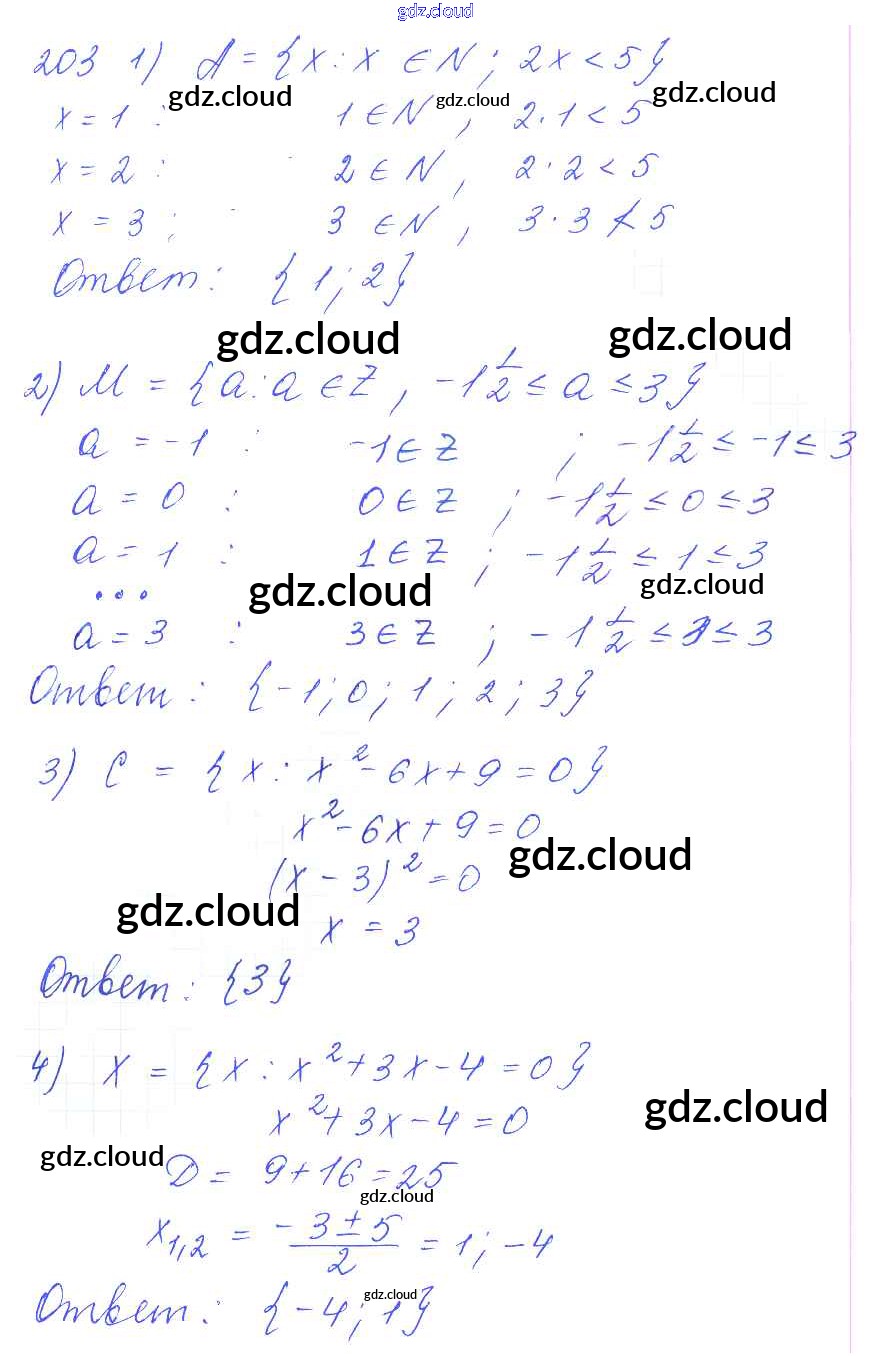 gdz.cloud
203 1) A = {x : x ∈ N ; 2x < 5}
gdz.cloud gdz.cloud gdz.cloud
x = 1 : 1 ∈ N , 2·1 < 5
x = 2 : 2 ∈ N , 2·2 < 5
x = 3 ; 3 ∈ N , 3·3 ≮ 5
Ответ: {1; 2}
gdz.cloud gdz.cloud
2) M = {a : a ∈ Z , -1 1/2 ≤ a ≤ 3}
a = -1 : -1 ∈ Z ; -1 1/2 ≤ -1 ≤ 3
a = 0 : 0 ∈ Z ; -1 1/2 ≤ 0 ≤ 3
a = 1 : 1 ∈ Z ; -1 1/2 ≤ 1 ≤ 3
... gdz.cloud gdz.cloud
a = 3 : 3 ∈ Z ; -1 1/2 ≤ 3 ≤ 3
Ответ: {-1; 0; 1; 2; 3}
3) C = {x : x² - 6x + 9 = 0}
x² - 6x + 9 = 0
gdz.cloud
(x - 3)² = 0
gdz.cloud
x = 3
Ответ: {3}
4) X = {x : x² + 3x - 4 = 0}
x² + 3x - 4 = 0
gdz.cloud
gdz.cloud
D = 9 + 16 = 25
gdz.cloud
x1,2 = (-3 ± 5)/2 = 1; -4
gdz.cloud
Ответ: {-4; 1}